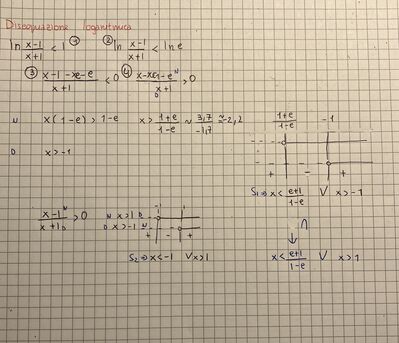 Disequazione logaritmica
ln x-1/x+1 < 1 ① ② ln x-1/x+1 < ln e
③ x-1-xe-e/x+1 < 0 ④ x-xe-1-e N/x+1 D > 0
N x(1-e) > 1-e x > 1+e/1-e ≈ 3,7/-1,7 ≈ -2,2
D x > -1
1+e/1-e -1
+ - +
S₁ ⇒ x < e+1/1-e ∨ x > -1
x-1 N/x+1 D > 0
N x > 1
D x > -1
-1 1
N
D
+ - +
S₂ ⇒ x < -1 ∨ x > 1
∩
↓
x < e+1/1-e ∨ x > 1